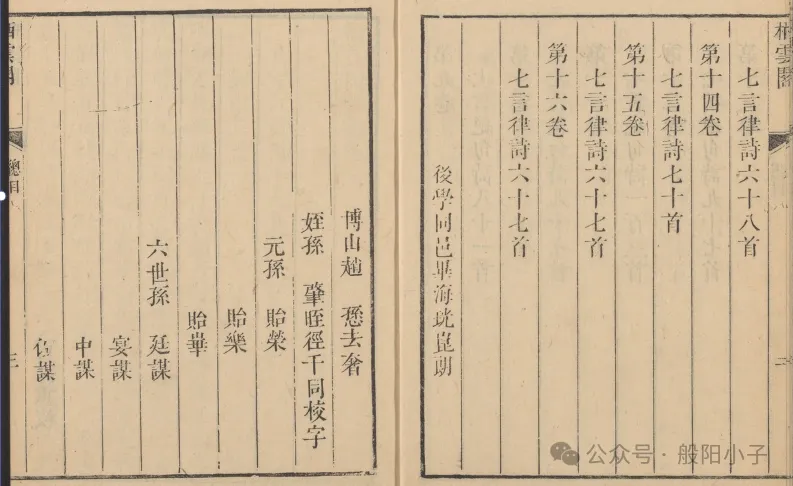 棲雲閣
七言律詩六十八首
第十四卷
七言律詩七十首
第十五卷
七言律詩六十七首
第十六卷
七言律詩六十七首
後學同邑畢海珖崑朗
二
博山趙 去奢
姪孫 肇 徑千同校字
元孫 貽榮
貽樂
貽華
六世孫 廷謀
宴謀
中謀
謀
總目
三
公众号·般阳小子